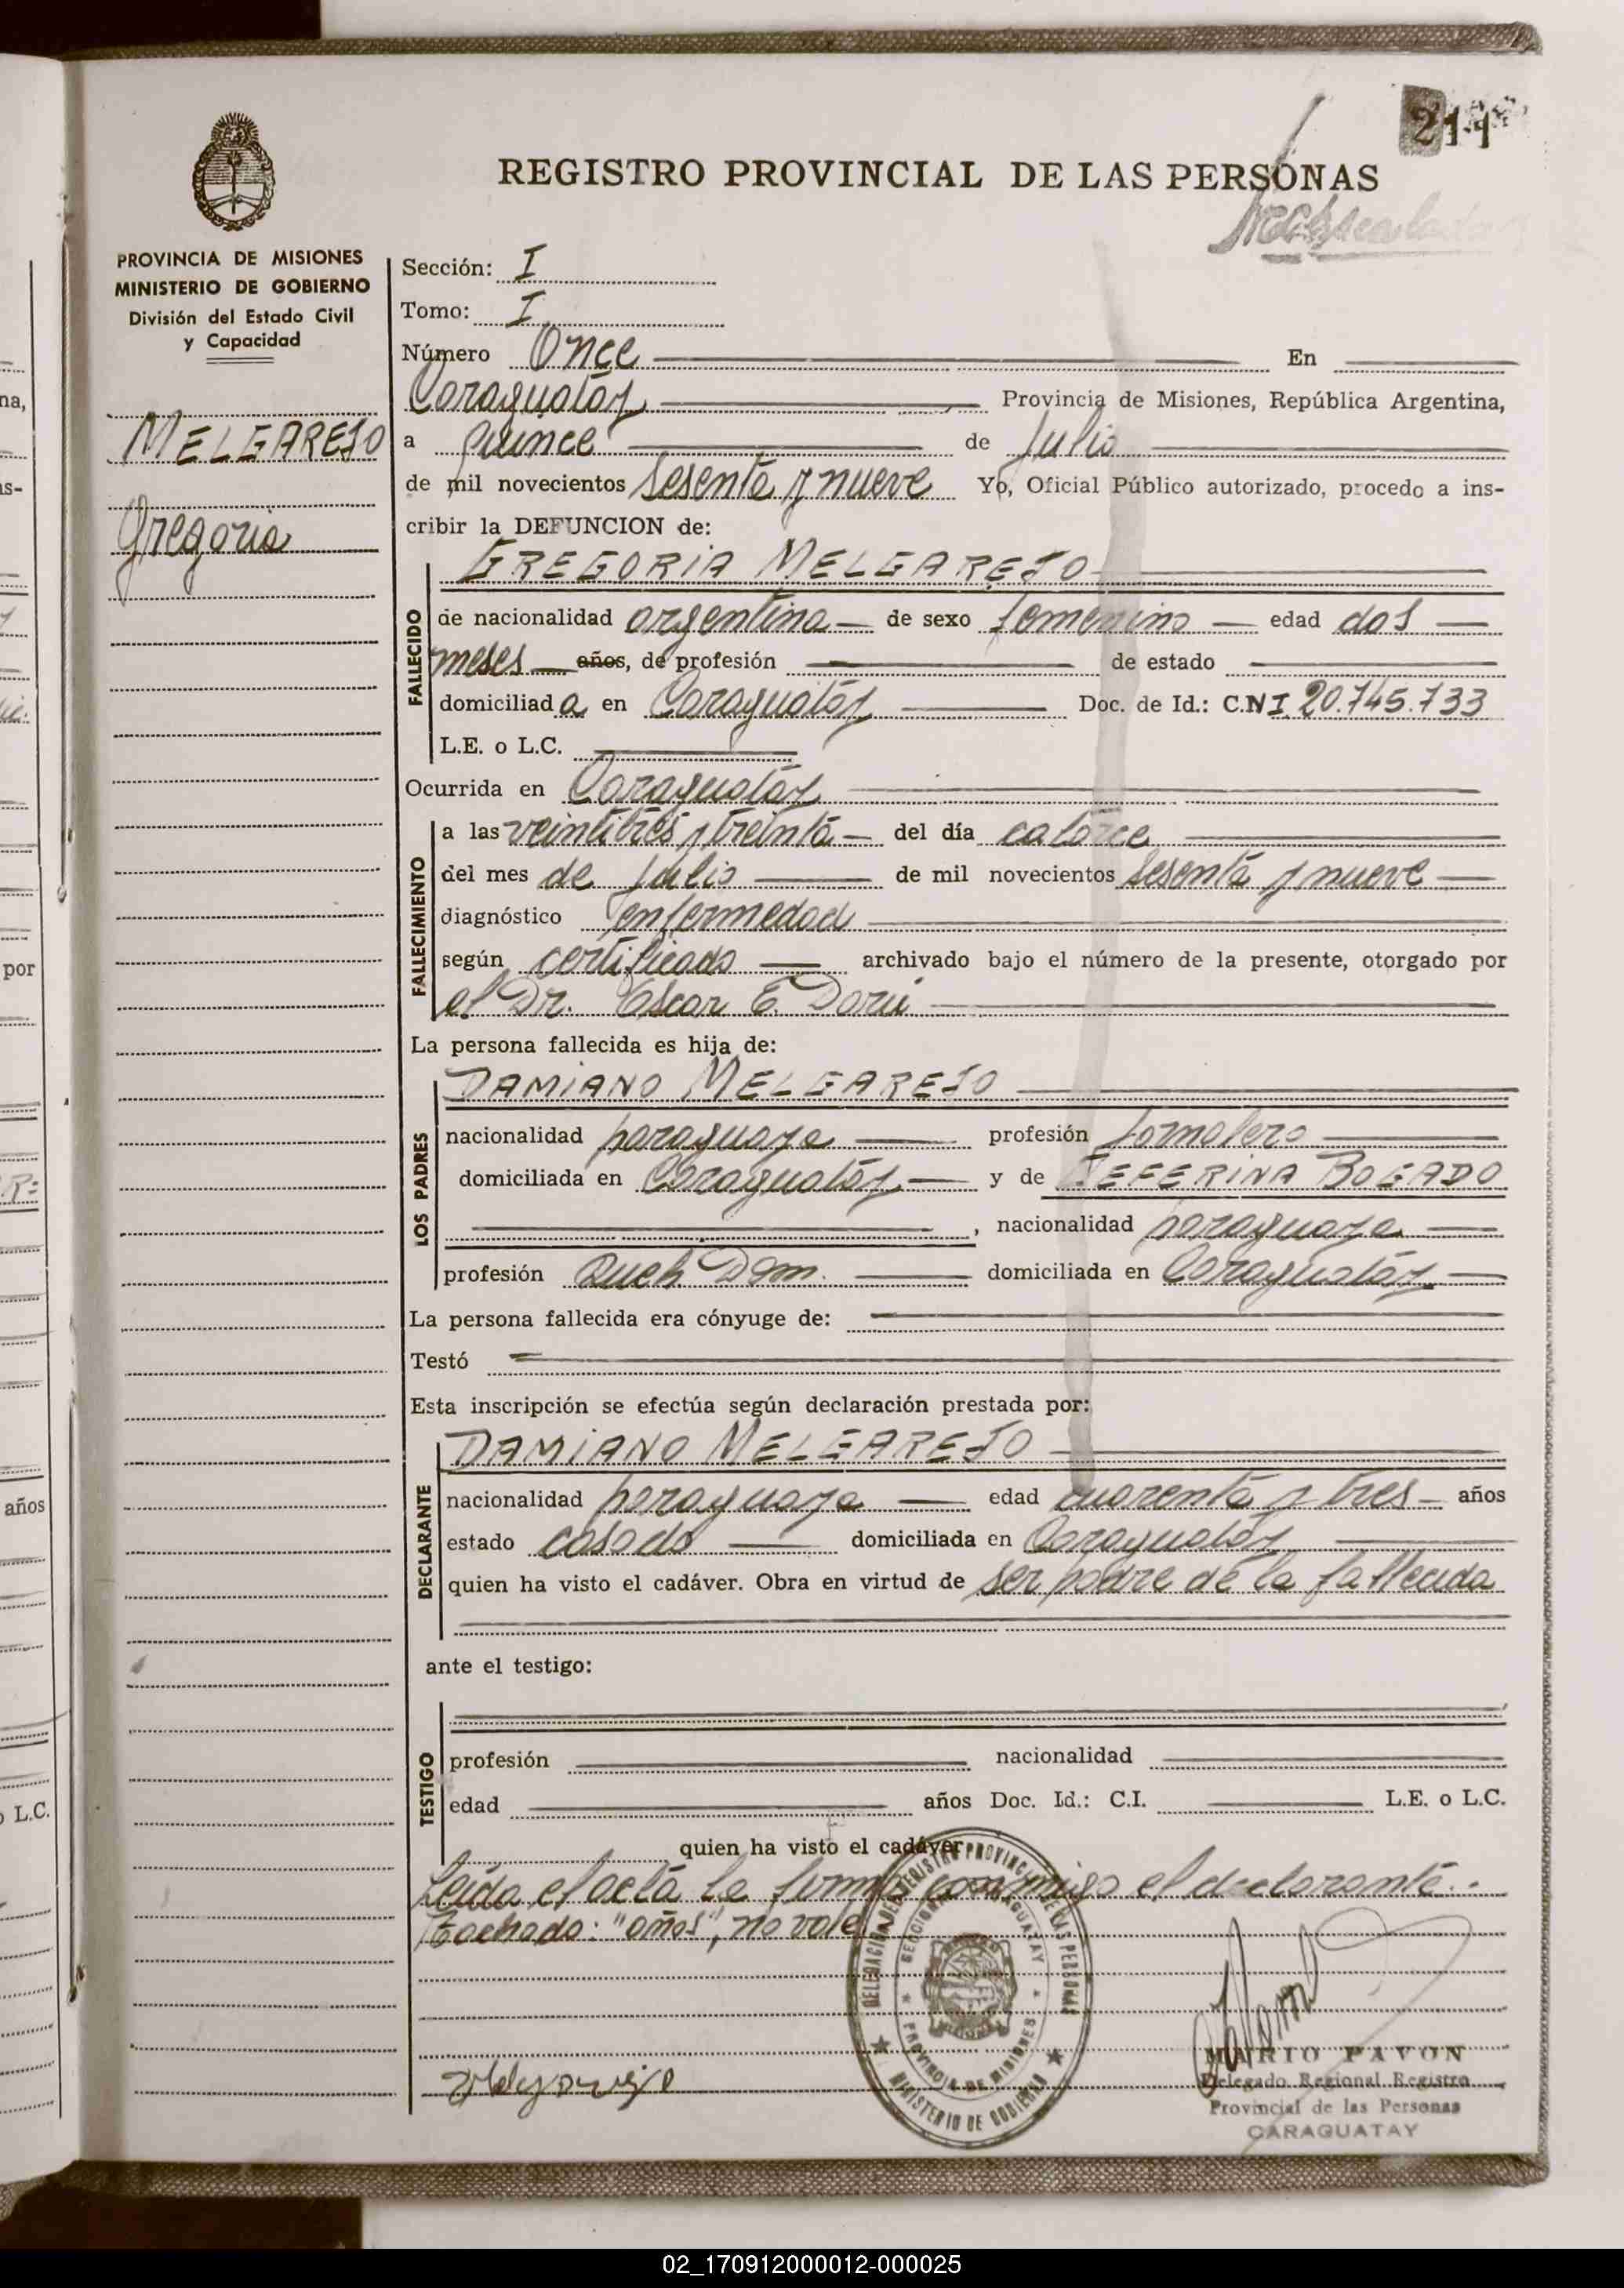 211
REGISTRO PROVINCIAL DE LAS PERSONAS
PROVINCIA DE MISIONES
MINISTERIO DE GOBIERNO
División del Estado Civil
y Capacidad
MELGAREJO
Gregoria
Sección: I
Tomo: I
Número Once En
Caraguatáy Provincia de Misiones, República Argentina,
a quince de Julio
de mil novecientos sesenta y nueve Yo, Oficial Público autorizado, procedo a ins-
cribir la DEFUNCION de:
GREGORIA MELGAREJO
FALLECIDO
de nacionalidad argentina de sexo femenino edad dos
meses años, de profesión de estado
domiciliada en Caraguatáy Doc. de Id.: C.NI 20.745.733
L.E. o L.C.
Ocurrida en Caraguatáy
FALLECIMIENTO
a las veintitrés y treinta del día catorce
del mes de julio de mil novecientos sesenta y nueve
diagnóstico enfermedad
según certificado archivado bajo el número de la presente, otorgado por
el Dr. Oscar E. Dorú
La persona fallecida es hija de:
DAMIANO MELGAREJO
LOS PADRES
nacionalidad paraguaya profesión Jornalero
domiciliada en Caraguatáy y de CEFERINA BOGADO
, nacionalidad paraguaya
profesión Queh Dom. domiciliada en Caraguatáy
La persona fallecida era cónyuge de:
Testó
Esta inscripción se efectúa según declaración prestada por:
DAMIANO MELGAREJO
DECLARANTE
nacionalidad paraguaya edad cuarenta y tres años
estado casado domiciliada en Caraguatáy
quien ha visto el cadáver. Obra en virtud de ser padre de la fallecida
ante el testigo:
TESTIGO
profesión nacionalidad
edad años Doc. Id.: C.I. L.E. o L.C.
quien ha visto el cadáver
Leída el acta la firma conmigo el declarante.
Tachado: "años", no vale
DELEGACION DEL REGISTRO PROVINCIAL DE LAS PERSONAS
SECCIONAL CARAGUATAY
PROVINCIA DE MISIONES
MINISTERIO DE GOBIERNO
MARIO PAVON
Delegado Regional Registro
Provincial de las Personas
CARAGUATAY
na,
por
años
o L.C.
02_170912000012-000025